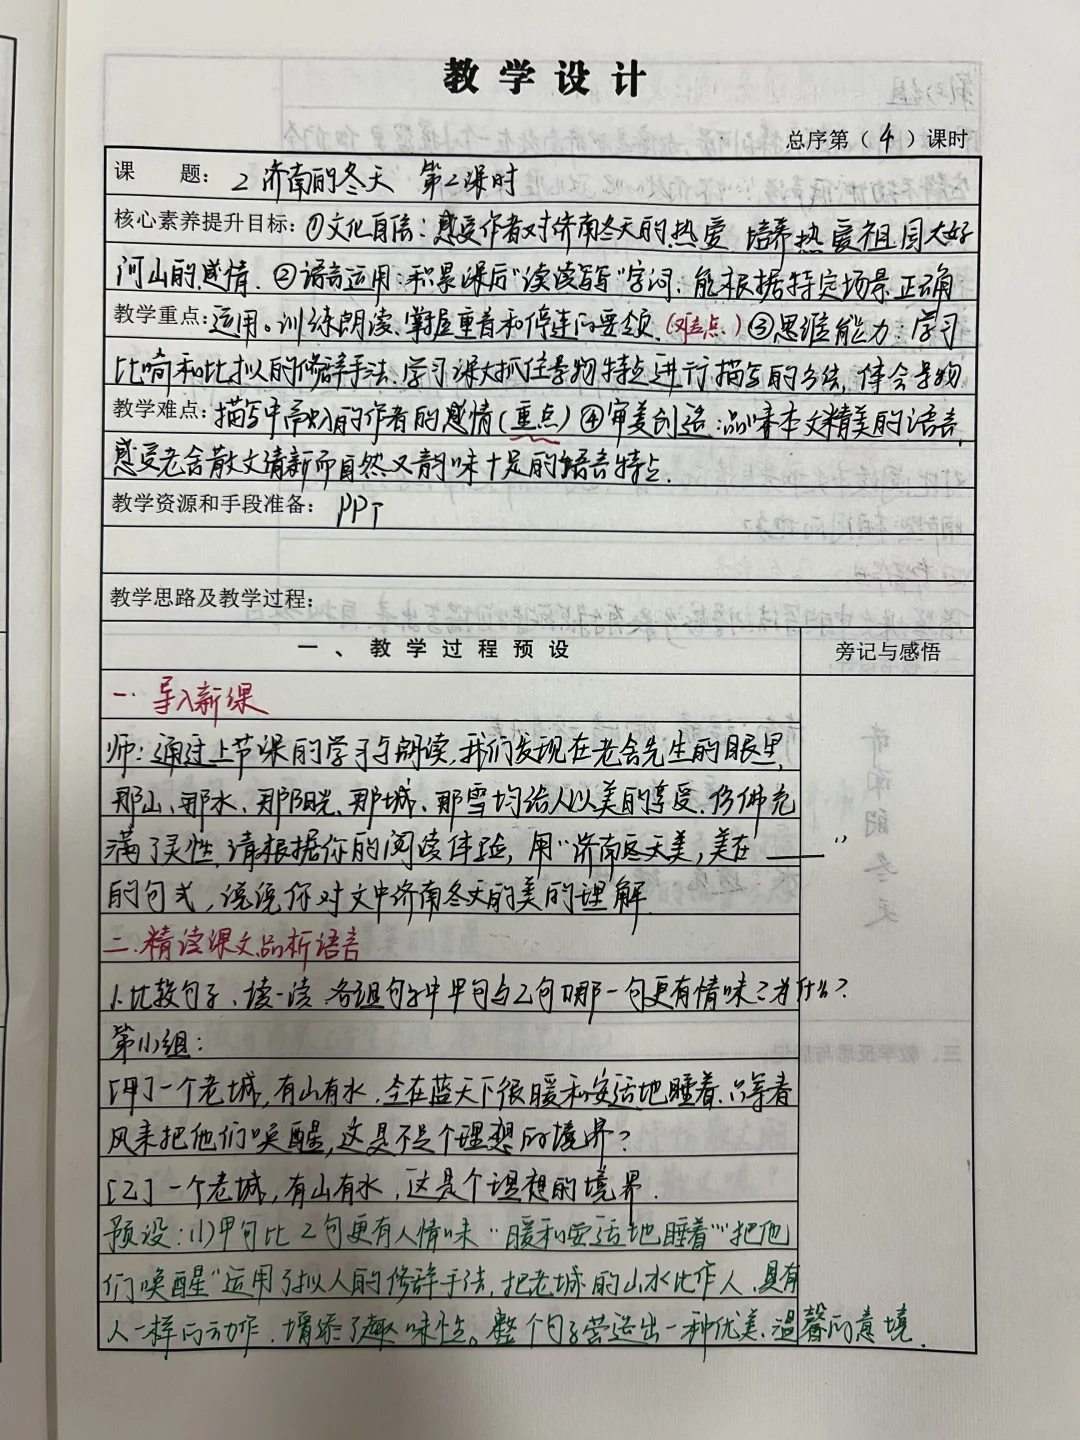 教学设计
总序第（4）课时
课 题：2 济南的冬天 第2课时
核心素养提升目标：①文化自信：感受作者对济南冬天的热爱，培养热爱祖国大好
河山的感情.②语言运用：积累课后“读读写写”字词；能根据特定场景正确
教学重点：运用。训练朗读、掌握重音和停连的要领.(难点.)③思维能力：学习
比喻和比拟的修辞手法、学习课文抓住景物特点进行描写的方法，体会景物
教学难点：描写中的作者的感情(重点)④审美创造：品味本文精美的语言，
感受老舍散文清新而自然又韵味十足的语言特点.
教学资源和手段准备：PPT
教学思路及教学过程：
一、教学过程预设
旁记与感悟
一. 导入新课
师：通过上节课的学习与朗读，我们发现在老舍先生的眼里，
那山、那水、那阳光、那城、那雪均给人以美的享受.仿佛充
满了灵性.请根据你的阅读体验，用“济南冬天美，美在____”
的句式，说说你对文中济南冬天的美的理解.
二.精读课文品析语言
1.比较句子、读一读.各组句子中甲句与乙句哪一句更有情味？为什么？
第(1)组：
[甲]一个老城，有山有水，全在蓝天下很暖和安适地睡着.只等春
风来把他们唤醒，这是不是个理想的境界？
[乙]一个老城，有山有水，这是个理想的境界.
预设：(1)甲句比乙句更有人情味“暖和安适地睡着”“把他
们唤醒”运用了拟人的修辞手法，把老城的山水比作人，具有
人一样的动作，增添了趣味性。整个句子营造出一种优美.温馨的意境.